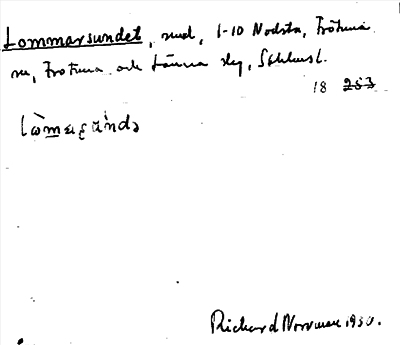 Lommarsundet, sund, 1-10 Nodsta, Frötuna
sn, Frötuna och Länna slg, Sthlms l.
18 253
Richard Norrman 1930.